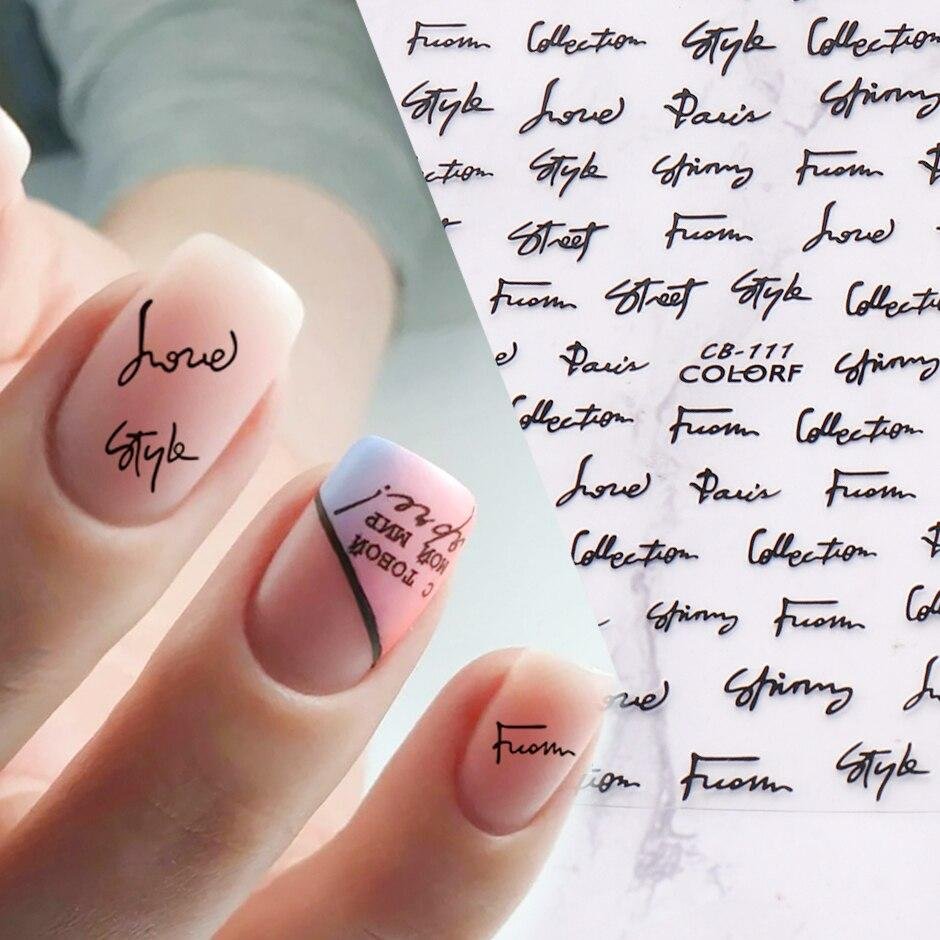 Love
Style
С ТОБОЙ
МОЙ МИР
ярче!
From
From Collection Style Collection
Style Love Paris Spinny
ction Style Spinny From
Street From Love
From Street Style Collecti
e Paris CB-111 Spinny
COLORF
Collection From Collection
Love Paris From
Collection Collection
Spinny From Col
ove Spinny
ion From Style